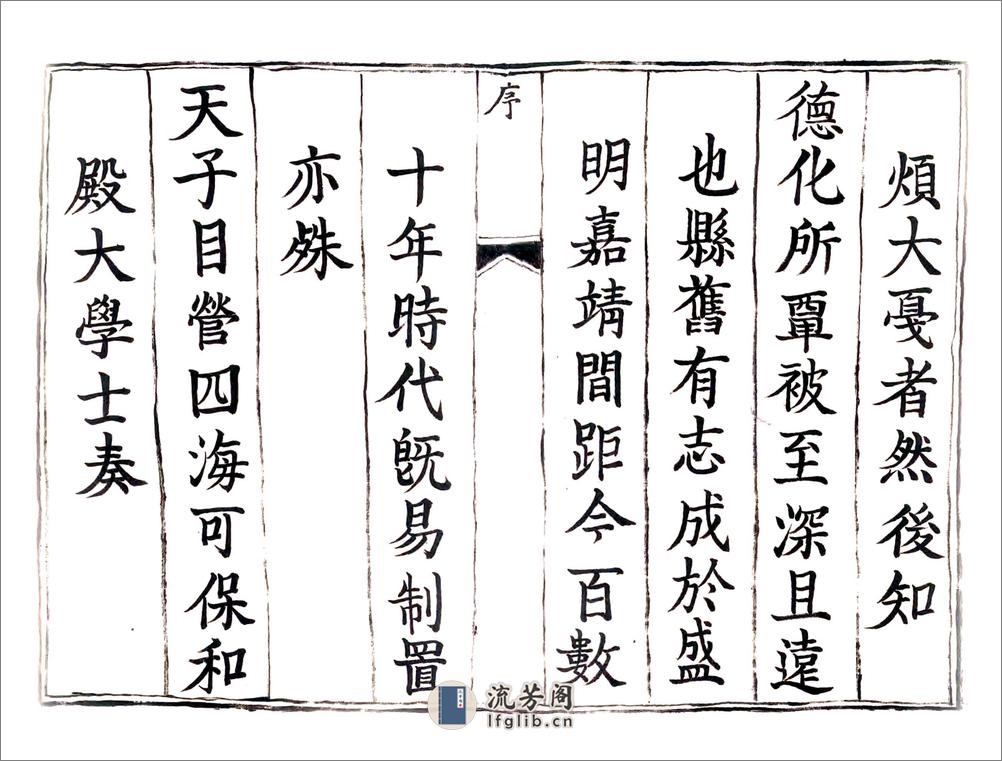 煩大戞者然後知
德化所覃被至深且遠
也縣舊有志成於盛
明嘉靖間距今百數
序
十年時代旣易制置
亦殊
天子目營四海可保和
殿大學士奏
流芳阁
lfglib.cn